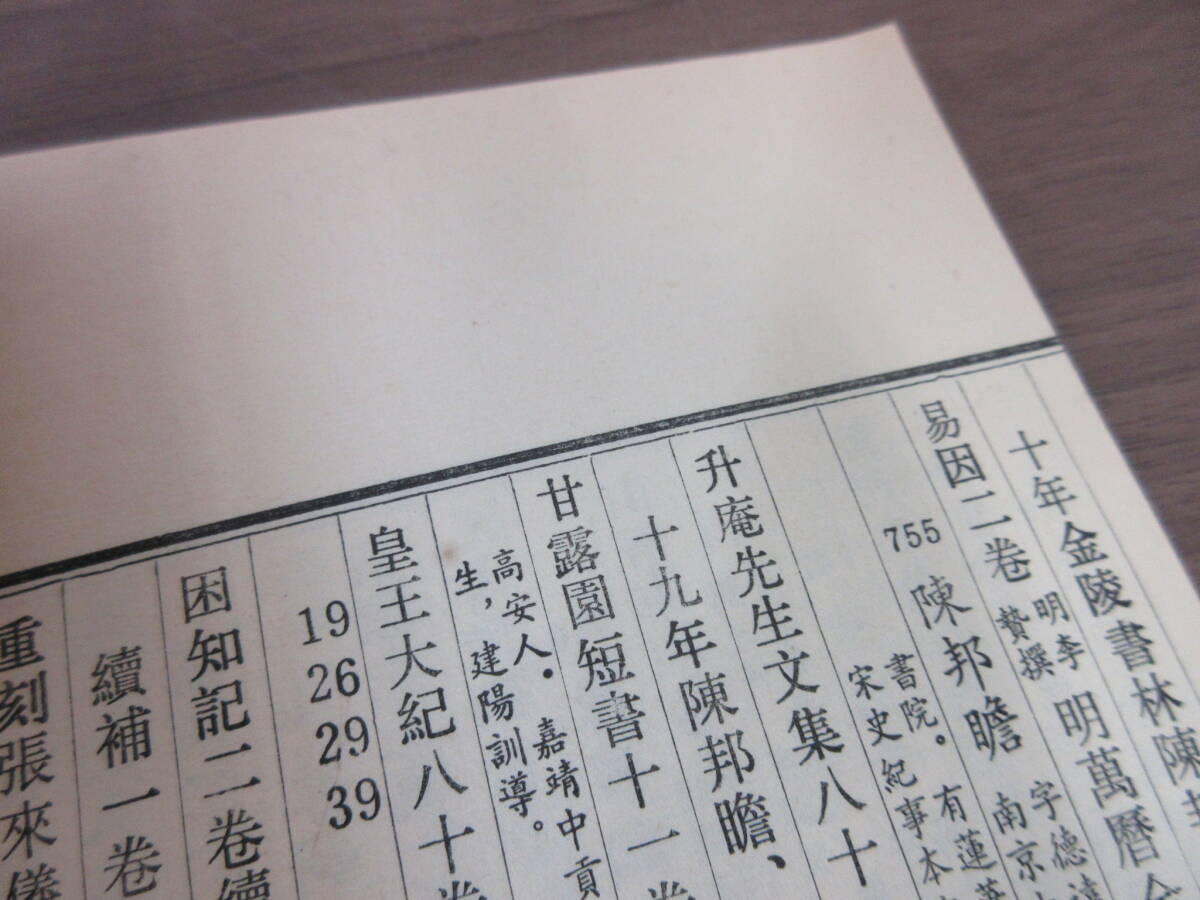 十年金陵書林陳
易因二卷 明李贄撰 明萬曆
755 陳邦瞻 字德遠
南京
書院。有蓮
宋史紀事本
升庵先生文集八十
十九年陳邦瞻、
甘露園短書十一
高安人。嘉靖中貢
生，建陽訓導。
皇王大紀八十卷
19
26
29
39
困知記二卷續
續補一卷
重刻張來儀